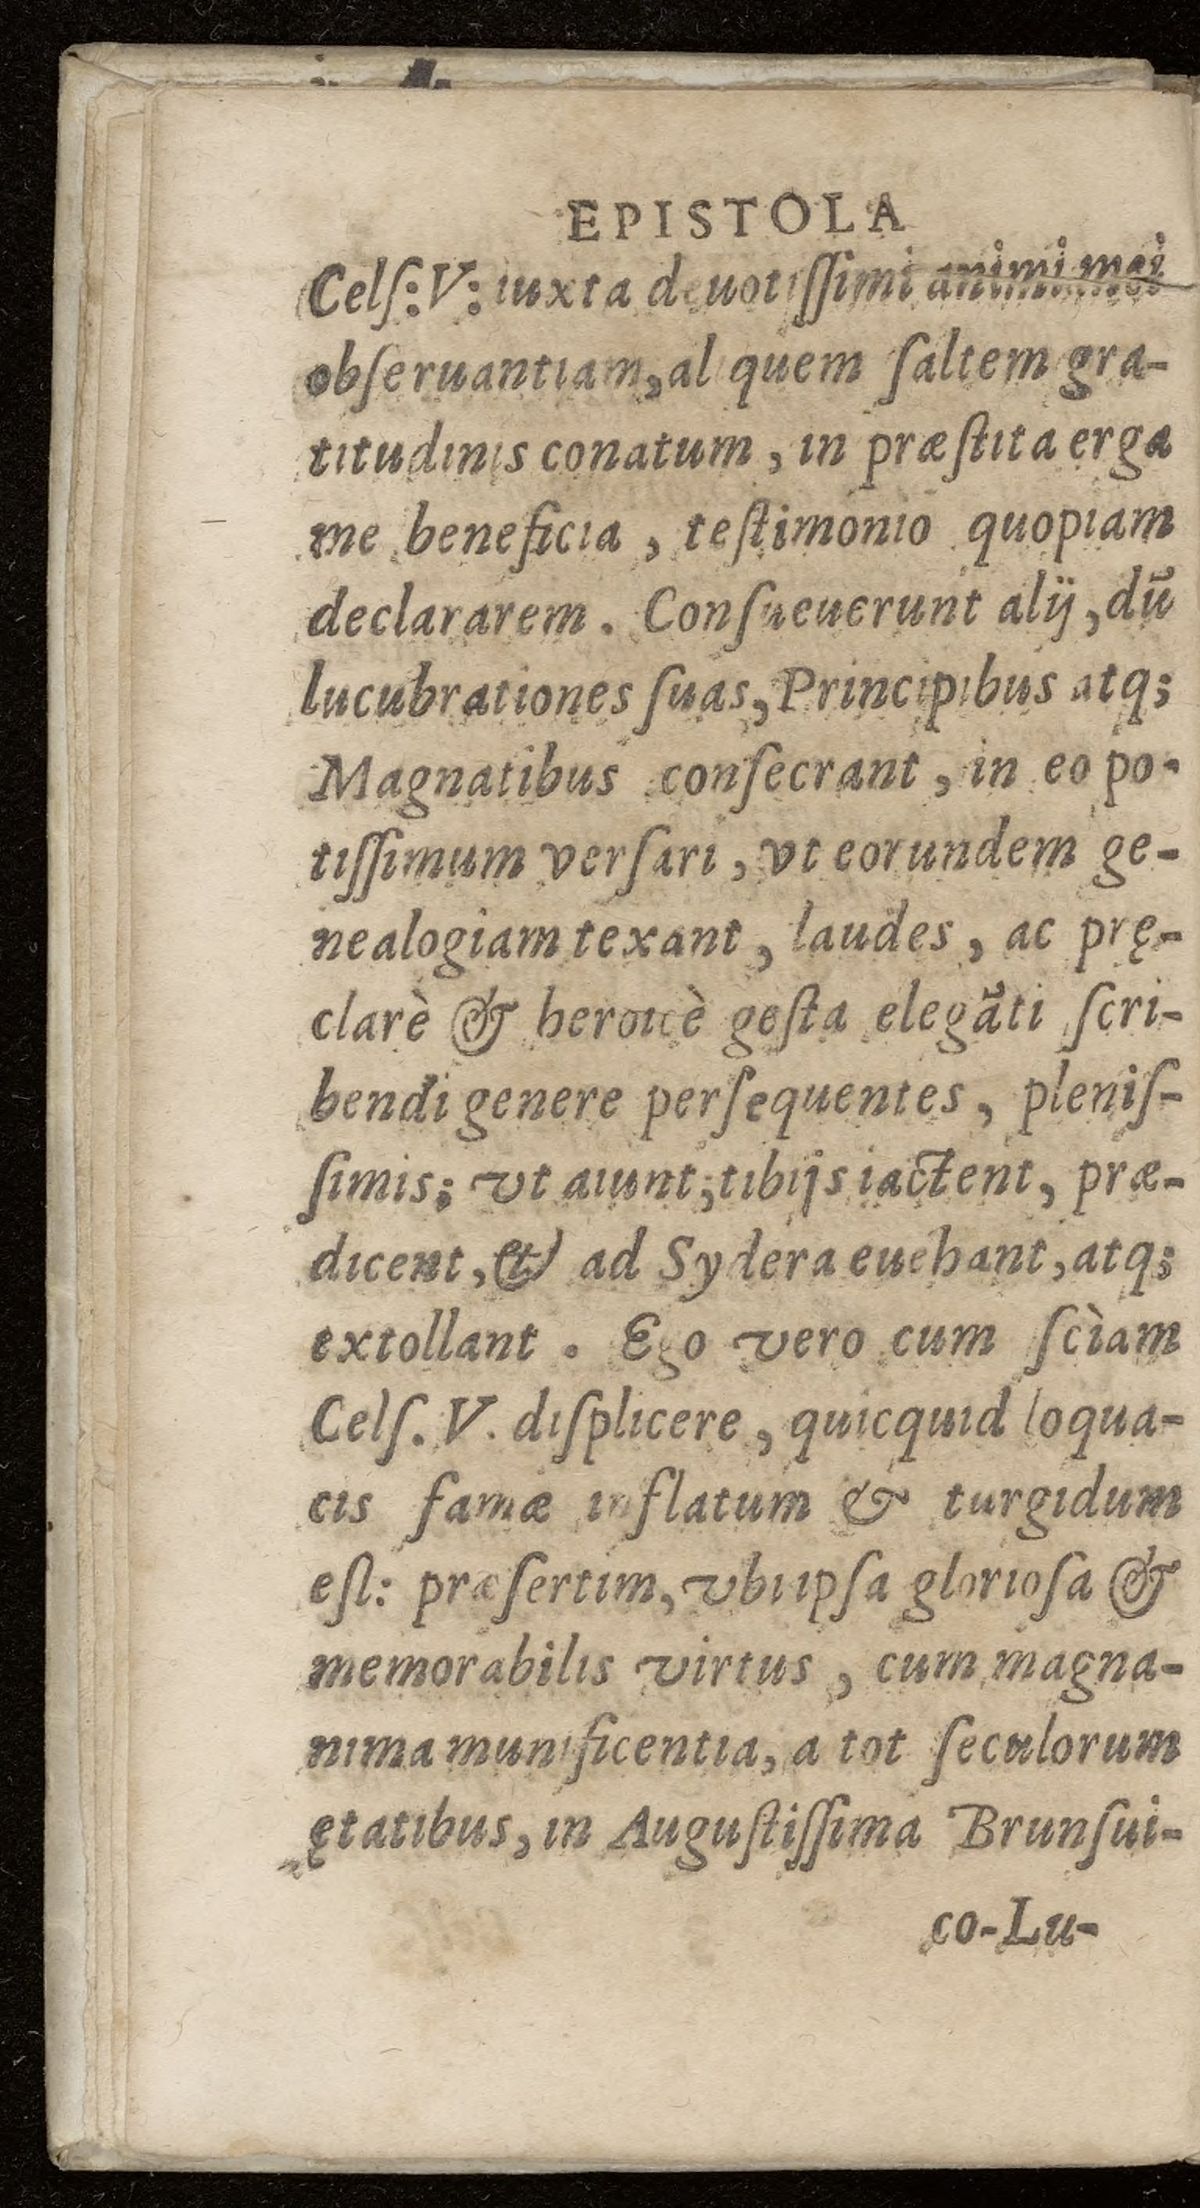 EPISTOLA
Celſ: V: iuxta deuotiſſimi animi mei
obſeruantiam, aliquem ſaltem gra-
titudinis conatum, in præſtita erga
me beneficia, teſtimonio quopiam
declararem. Conſueuerunt alij, dũ
lucubrationes ſuas, Principibus atq;
Magnatibus conſecrant, in eo po-
tiſſimum verſari, vt eorundem ge-
nealogiam texant, laudes, ac prę-
clarè & heroicè geſta elegãti ſcri-
bendi genere perſequentes, pleniſ-
ſimis; vt aiunt; tibijs iactent, præ-
dicent, & ad Sydera euehant, atq;
extollant. Ego vero cum ſciam
Celſ. V. diſplicere, quicquid loqua-
cis famæ inflatum & turgidum
eſt: præſertim, vbi ipſa glorioſa &
memorabilis virtus, cum magna-
nima munificentia, a tot ſeculorum
ętatibus, in Auguſtiſſima Brunſui-
co-Lu-